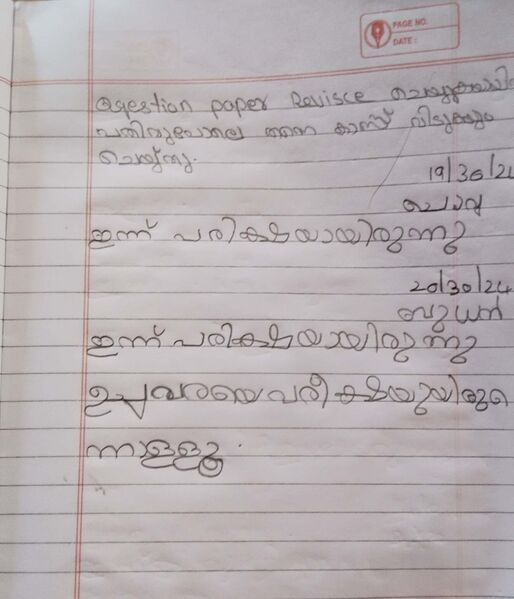 PAGE NO.
DATE :
Question paper Revisce ചെയ്യുകയായി
പതിവുപോലെ തന്നെ ക്ലാസ് വിടുകയും
ചെയ്തു.
19/30/24
ചൊവ്വ
ഇന്ന് പരികഷയായിരുന്നു
20/30/24
ബുധൻ
ഇന്ന് പരികഷയായിരുന്നു
ഉച്ചവരയെ പരീകഷയുയിരുന്നെ
ന്നാള്ളൂ.